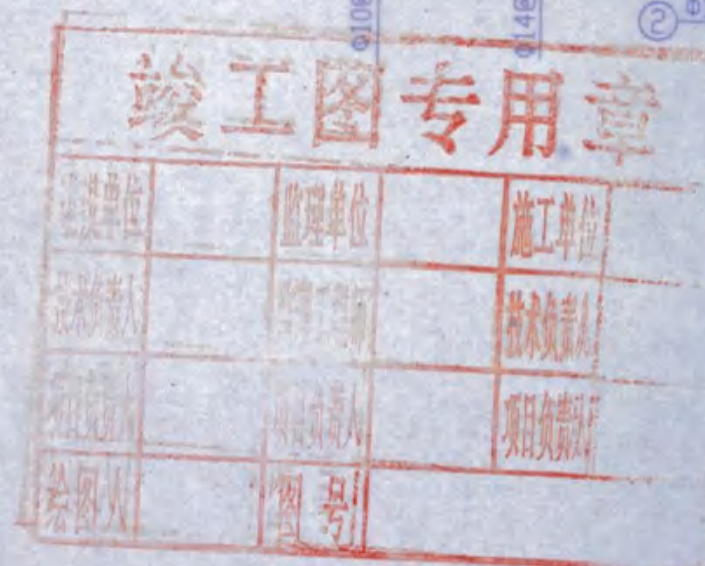 Φ10@
Φ14@
②
竣工图专用章
建设单位 监理单位 施工单位
技术负责人 监理工程师 技术负责人
项目负责人 项目负责人 项目负责人
绘图人 图号